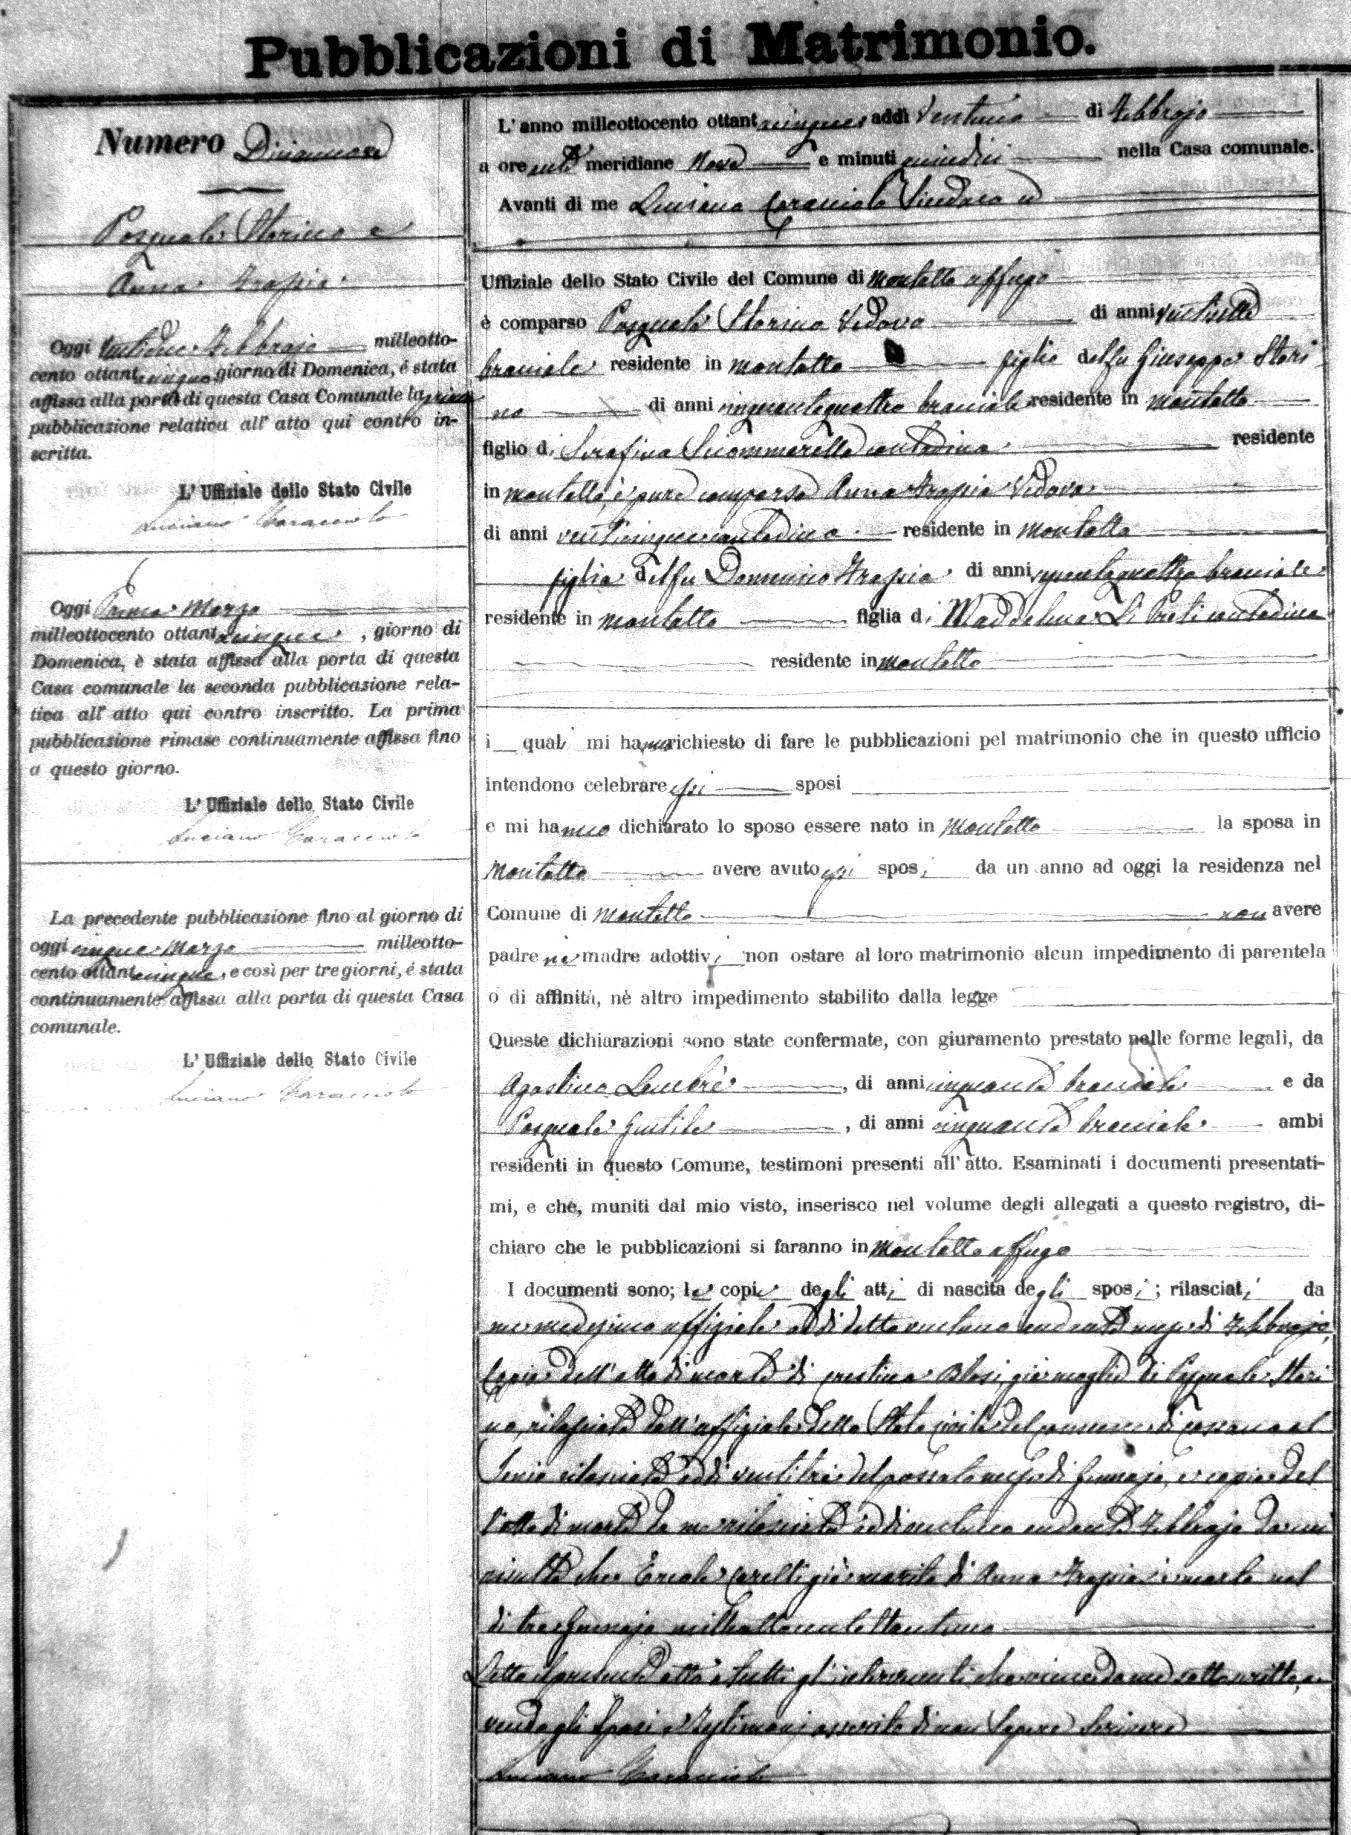 Pubblicazioni di Matrimonio.
Numero Diciannove
Pasquale Storino e
Anna Trapia
Oggi ventidue Febbrajo milleotto-
cento ottantacinque giorno di Domenica, é stata
affissa alla porta di questa Casa Comunale la prima
pubblicazione relativa all' atto qui contro in-
scritta.
L' Uffiziale dello Stato Civile
Luciano Caracciolo
Oggi Primo Marzo
milleottocento ottantacinque, giorno di
Domenica, è stata affissa alla porta di questa
Casa comunale la seconda pubblicazione rela-
tiva all' atto qui contro inscritto. La prima
pubblicazione rimase continuamente affissa fino
a questo giorno.
L' Uffiziale dello Stato Civile
Luciano Caracciolo
La precedente pubblicazione fino al giorno di
oggi cinque Marzo milleotto-
cento ottantacinque, e così per tre giorni, é stata
continuamente affissa alla porta di questa Casa
comunale.
L' Uffiziale dello Stato Civile
Luciano Caracciolo
L' anno milleottocento ottantacinque addì ventuno di Febbrajo
a ore anti meridiane Nove e minuti quindici nella Casa comunale.
Avanti di me Luciano Caracciolo Sindaco ed
Uffiziale dello Stato Civile del Comune di Montalto Uffugo
è comparso Pasquale Storino Vedovo di anni ventisette
bracciale residente in Montalto figlio del fu Giuseppe Stori
no di anni cinquantaquattro bracciale residente in Montalto
figlio di Serafina Scommarella contadina residente
in Montalto, è pure comparsa Anna Trapia Vedova
di anni venticinque contadina residente in Montalto
figlia del fu Domenico Trapia di anni cinquantaquattro bracciale
residente in Montalto figlia di Maddalena Li Preti contadina
residente in Montalto
i quali mi hanno richiesto di fare le pubblicazioni pel matrimonio che in questo ufficio
intendono celebrare essi sposi
e mi hanno dichiarato lo sposo essere nato in Montalto la sposa in
Montalto avere avuto essi sposi da un anno ad oggi la residenza nel
Comune di Montalto non avere
padre nè madre adottivi non ostare al loro matrimonio alcun impedimento di parentela
o di affinità, nè altro impedimento stabilito dalla legge
Queste dichiarazioni sono state confermate, con giuramento prestato nelle forme legali, da
Agostino Lembrè, di anni cinquanta bracciale e da
Pasquale Gentile, di anni cinquanta bracciale ambi
residenti in questo Comune, testimoni presenti all' atto. Esaminati i documenti presentati-
mi, e che, muniti dal mio visto, inserisco nel volume degli allegati a questo registro, di-
chiaro che le pubblicazioni si faranno in Montalto Uffugo
I documenti sono; le copie degli atti di nascita degli sposi; rilasciati da
me medesimo uffiziale addì detto ventuno andante mese di Febbrajo,
Copia dell' atto di morte di Cristina Blasi, già moglie di Pasquale Stori
no, rilasciata dall' uffiziale dello Stato civile del comune di Cassano al
Ionio rilasciata addì ventitre del passato mese di Gennajo, e copia del
l' atto di morte da me rilasciata addì ventuno andante Febbrajo da cui
risulta che Ercole Carelli già marito di Anna Trapia è morto nel
dì tre Gennajo milleottocentottantuno
Letto il presente atto a tutti gl' intervenuti che viene da me sottoscritto, a-
vendo gli Sposi e Testimoni asserito di non Sapere Scrivere
Luciano Caracciolo